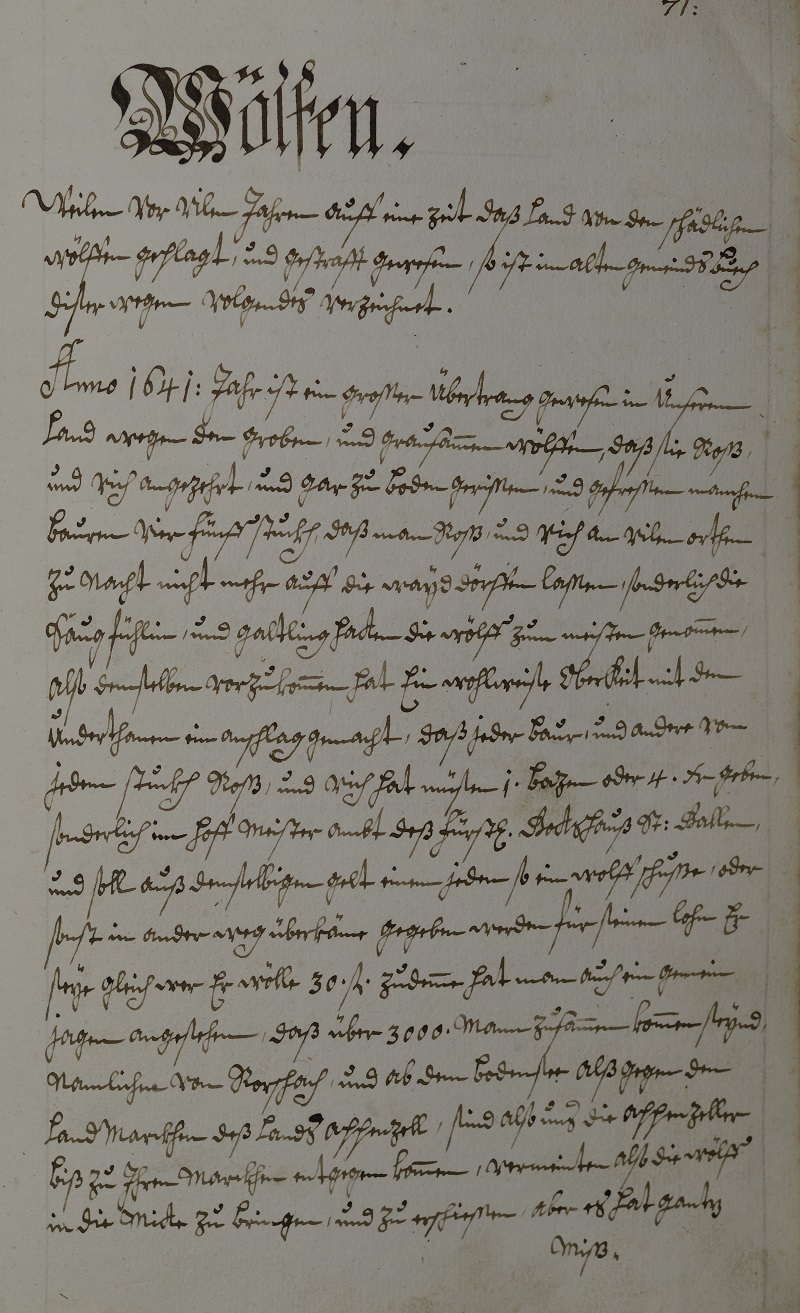 71:
Wölffen.
Weilen vor vilen Jahren auff eine zeit daß Land von den schädlichen
wölffen geplagt, und gestrafft gewesen, so ist im alten gemeinds buech
diser wegen volgendes verzeichnet.
Anno 1641: Jahr ist ein grosser Übertrang gewesen in Unserem
Land wegen den groben, und grausamen wölffen, daß sie Roß,
und vich angezehrt, und gar zu boden gerissen, und gefressen manchem
bauren vier fünff stuckh, daß man Roß, und vich an vilen orthen
zu Nacht nicht mehr auff die wayd dörffen lassen, sonderlich die
Säug fühlin, und galtling hatten die wölff zum meisten genommen,
also demselben vorzukommen hat Ein wohlweise Oberkeit mit den
Underthanen ein anschlag gemacht, daß jeder baur, und andere von
jedem stuckh Roß, und vich hat müsen 1. bazen oder 4. kr geben,
sonderlich im hoff Meister ambt deß Fürstl. Gottshauß St: Gallen,
und soll auß demselbigen gelt einem jeden so ein wolff schusse, oder
sonst in ander weg überkäme gegeben werden für seinen lohn Er
seye gleich wer Er wölle 30. fl. zudeme hat man auch ein gemein
jagen angesehen, daß über 3000. Mann zusammen kommen seynd,
Namlichen von Rorschach, und ab dem bodensee alß gegen den
Land Marckhen deß Lands appenzell, sind also unß die appenzeller
biß zu Ihren Marckhen entgegen kommen, vermeinten also die wölff
in die Mitte zu bringen, und zu erschiessen, aber es hat gantz
Miß.